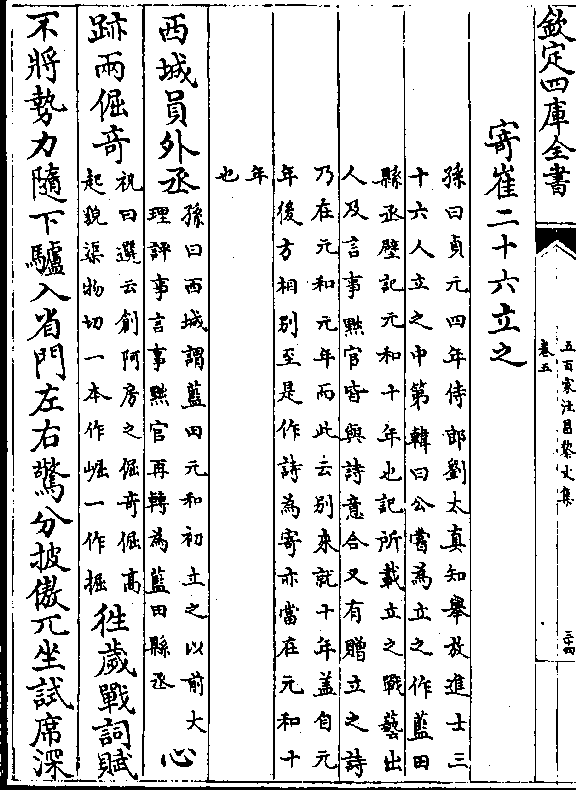 欽定四庫全書
五百家注昌黎文集
卷五
三十四
寄崔二十六立之
孫曰貞元四年侍郎劉太真知舉放進士三
十六人立之中第韓曰公嘗為立之作藍田
縣丞壁記元和十年也記所載立之戰藝出
人及言事黜官皆與詩意合又有贈立之詩
乃在元和元年而此云别來就十年盖自元
年後方相别至是作詩為寄亦當在元和十
年
也
西城員外丞孫曰西城謂藍田元和初立之以前大
理評事言事黜官再轉為藍田縣丞心
跡兩倔奇祝曰選云創阿房之倔奇倔高
起貌渠物切一本作崛一作掘徃歲戰詞賦
不將勢力隨下驢入省門左右驚分披傲兀坐試席深